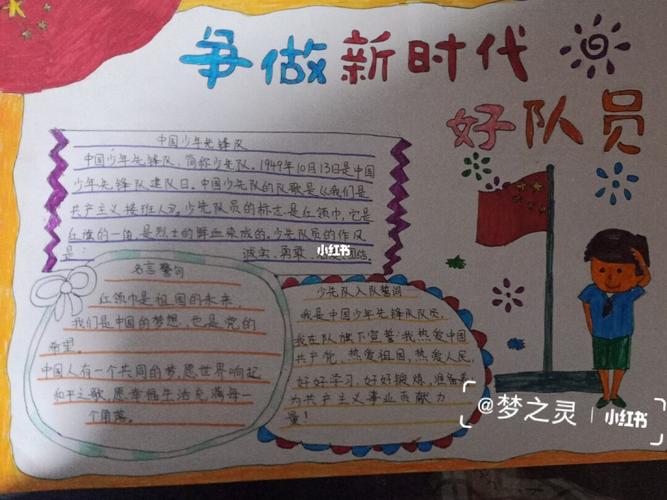 争做新时代
好队员
中国少年先锋队
中国少年先锋队，简称少先队。1949年10月13日是中国
少年先锋队建队日。中国少先队的队歌是《我们是
共产主义接班人》。少先队员的标志是红领巾，它是
红旗的一角，是烈士的鲜血染成的。少先队员的作风
是：诚实、勇敢、团结。
小红书
名言警句
红领巾是祖国的未来，
我们是中国的梦想，也是党的
希望。
中国人有一个共同的梦，愿世界响起
和平之歌，愿幸福生活充满每一
个角落。
少先队入队誓词
我是中国少年先锋队队员。
我在队旗下宣誓：我热爱中国
共产党，热爱祖国，热爱人民，
好好学习，好好锻炼，准备着
为共产主义事业贡献力
量！
@梦之灵 小红书